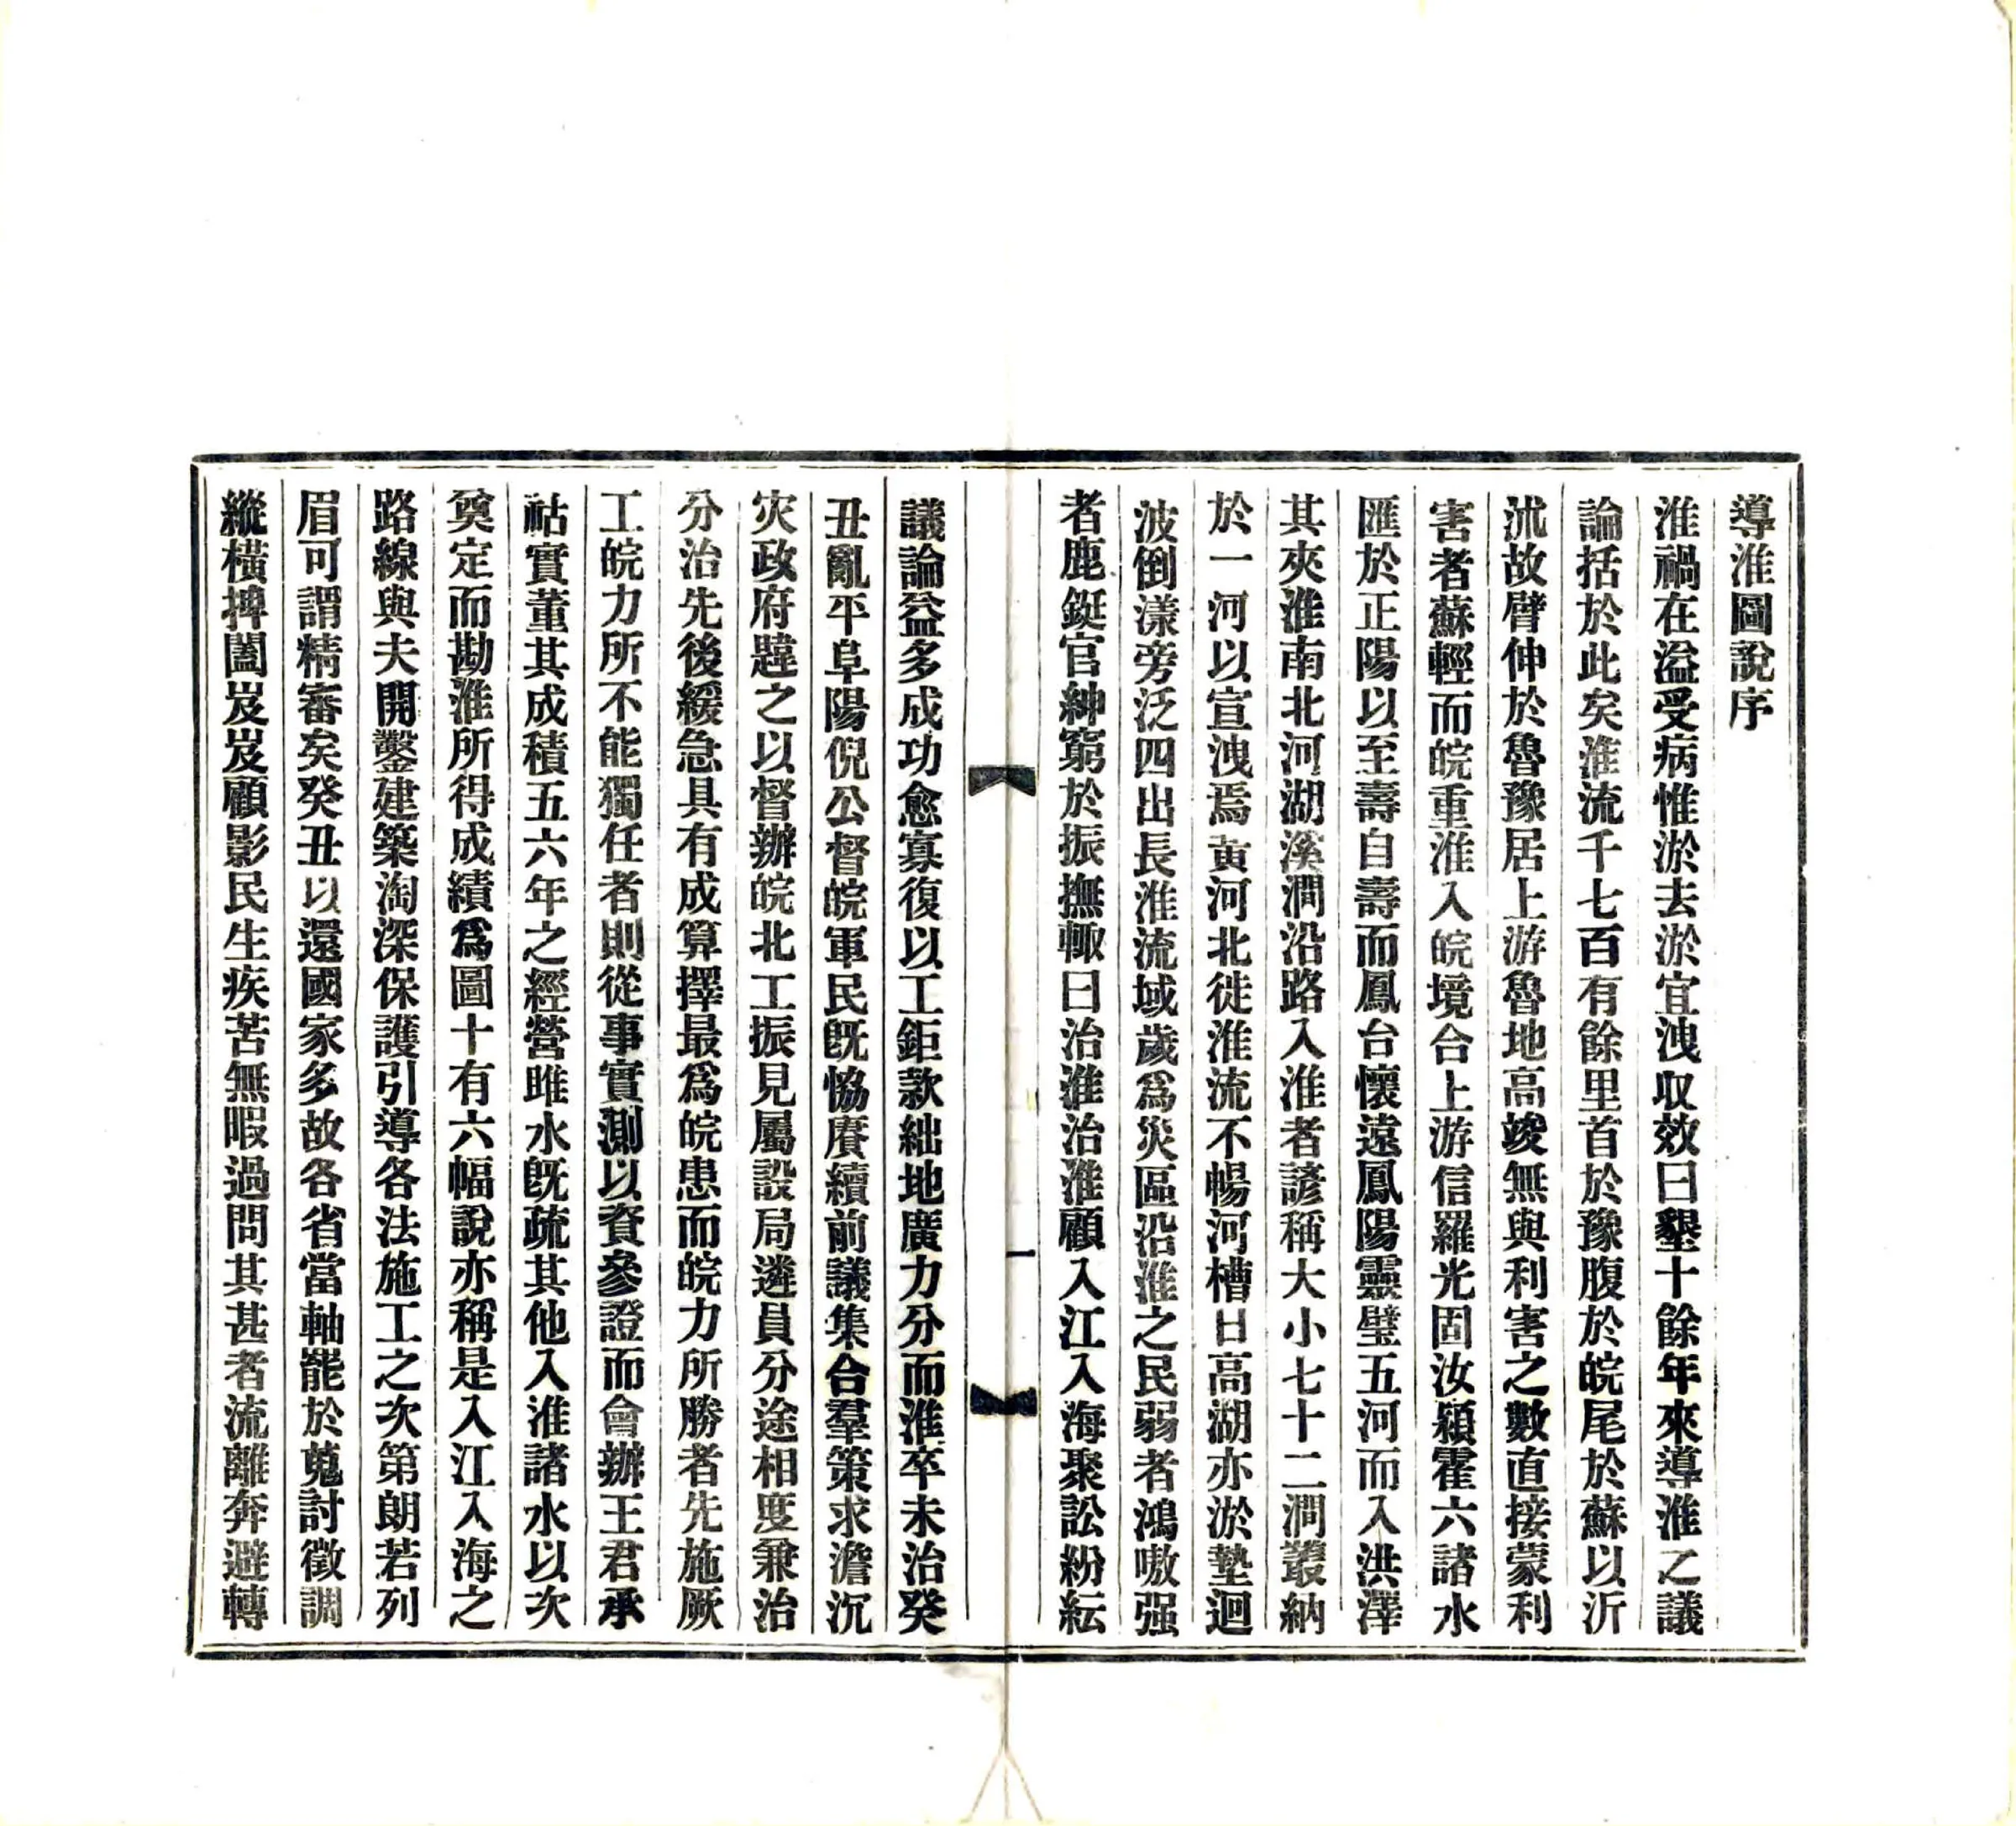 導淮圖說序
淮禍在溢受病惟淤去淤宜洩収效曰墾十餘年來導淮之議
論括於此矣淮流千七百有餘里首於豫腹於皖尾於蘇以沂
沭故臂伸於魯豫居上游魯地高竣無與利害之數直接蒙利
害者蘇輕而皖重淮入皖境合上游信羅光固汝潁霍六諸水
匯於正陽以至壽自壽而鳳台懷遠鳳陽靈璧五河而入洪澤
其夾淮南北河湖溪澗沿路入淮者諺稱大小七十二澗叢納
於一河以宣洩焉黃河北徙淮流不暢河槽日高湖亦淤墊迴
波倒漾旁泛四出長淮流域歲爲災區沿淮之民弱者鴻嗷强
者鹿鋌官紳窮於振撫輙曰治淮治淮顧入江入海聚訟紛紜
一
議論益多成功愈寡復以工鉅款絀地廣力分而淮卒未治癸
丑亂平阜陽倪公督皖軍民旣恊賡續前議集合羣策求澹沉
灾政府韙之以督辦皖北工振見屬設局遴員分途相度兼治
分治先後緩急具有成算擇最爲皖患而皖力所勝者先施厥
工皖力所不能獨任者則從事實測以資參證而會辦王君承
祜實董其成積五六年之經營睢水旣疏其他入淮諸水以次
奠定而勘淮所得成績爲圖十有六幅說亦稱是入江入海之
路線與夫開鑿建築淘深保護引導各法施工之次第朗若列
眉可謂精審矣癸丑以還國家多故各省當軸罷於蒐討徵調
縱橫捭闔岌岌顧影民生疾苦無暇過問其甚者流離奔避轉